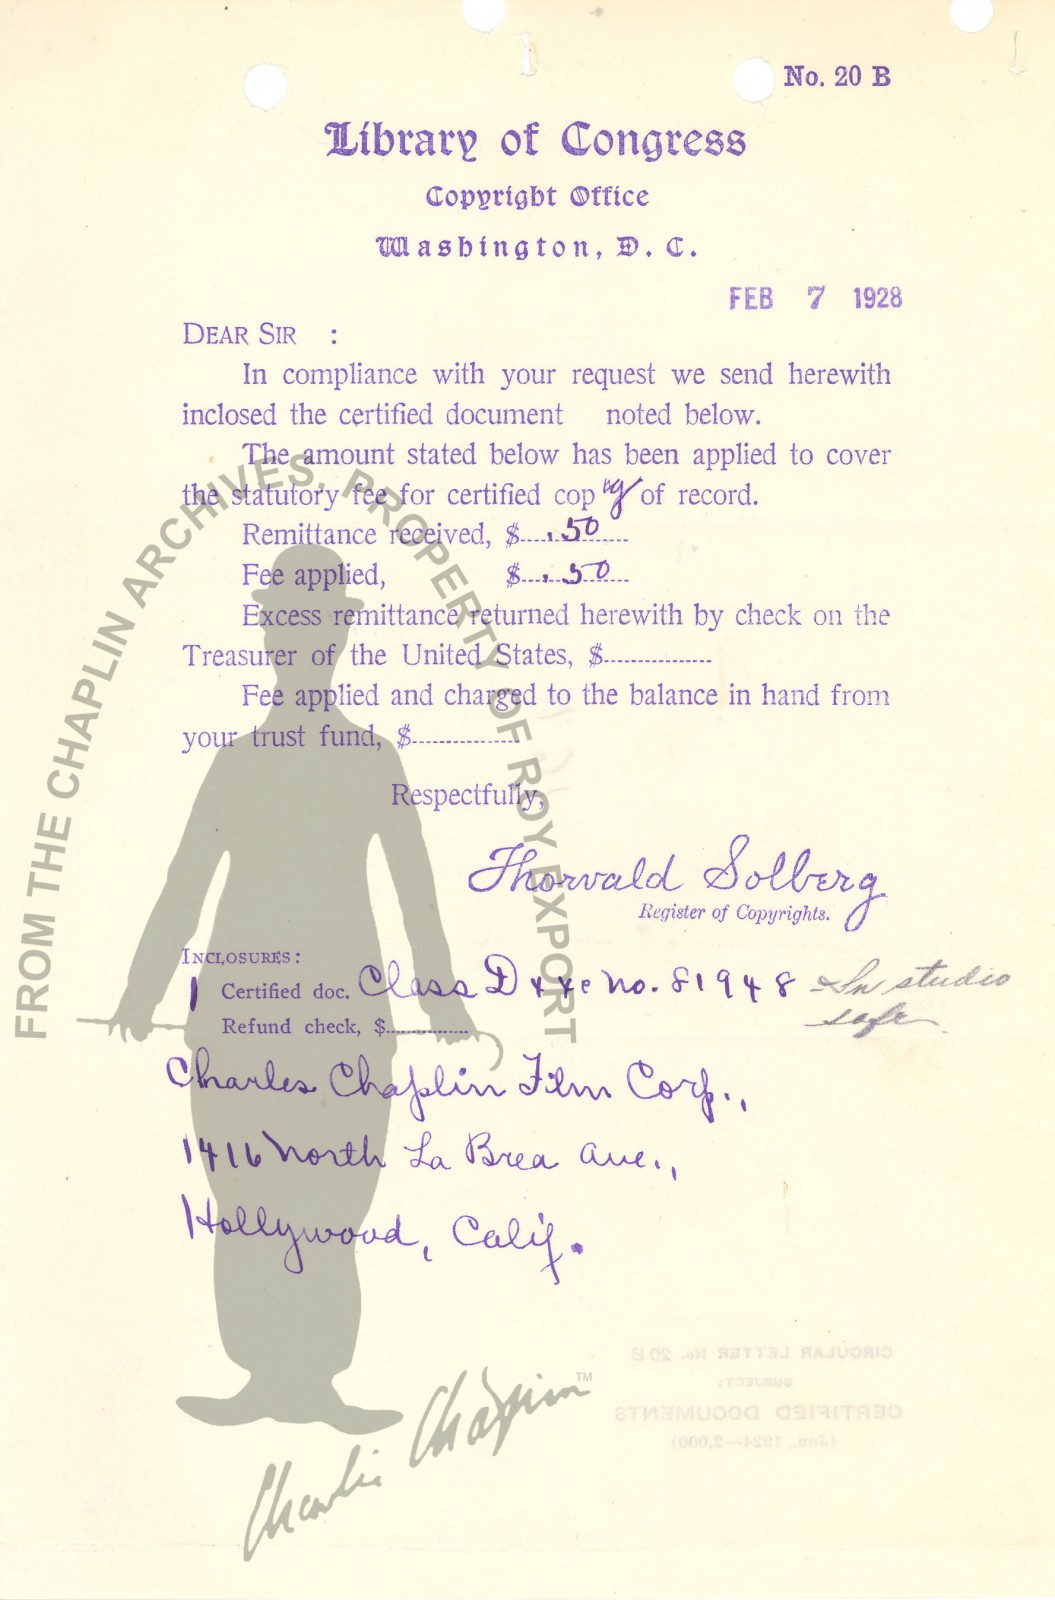 No. 20 B
Library of Congress
Copyright Office
Washington, D. C.
FEB 7 1928
DEAR SIR :
In compliance with your request we send herewith
inclosed the certified document noted below.
The amount stated below has been applied to cover
the statutory fee for certified cop y of record.
Remittance received, $ .50
Fee applied, $ .50
Excess remittance returned herewith by check on the
Treasurer of the United States, $
Fee applied and charged to the balance in hand from
your trust fund, $
Respectfully,
Thorvald Solberg
Register of Copyrights.
INCLOSURES:
1 Certified doc. Class D xxc No. 81948 - In studio
safe
Refund check, $
Charles Chaplin Film Corp.,
1416 North La Brea Ave.,
Hollywood, Calif.
CIRCULAR LETTER No. 20 B
SUBJECT:
CERTIFIED DOCUMENTS
(Jan., 1924—2,000)
FROM THE CHAPLIN ARCHIVES, PROPERTY OF ROY EXPORT
Charlie Chaplin ™